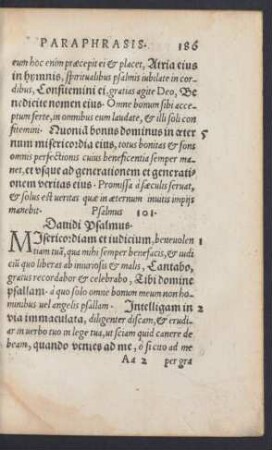 PARAPHRASIS. 186
eum hoc enim præcepit ei & placet, Atria eius
in hymnis, spiritualibus psalmis iubilate in cor-
dibus, Confitemini ei, gratias agite Deo, Be
nedicite nomen eius. Omne bonum sibi acce
ptum ferte, in omnibus eum laudate, & illi soli con
fitemini. Quoniã bonus dominus in æter 5
num misericordia eius, totus bonitas & fons
omnis perfectionis cuius beneficentia semper ma
net, et vsque ad generationem et generati
onem veritas eius. Promissa à sæculis seruat,
& solus est ueritas quæ in æternum inutis impijs
manebit. Psalmus 101.
Dauidi Psalmus.
MIsericordiam et iudicium, beneuolen 1
tiam tuã, qua mihi semper benefacis, & iudi
ciũ quo liberas ab inuiosis & malis, Cantabo,
gratus recordabor & celebrabo, Tibi domine
psallam. à quo solo omne bonum meum non ho-
minibus uel angelis psallam. Intelligam in 2
via immaculata, diligenter discam, & erudi-
ar in uerbo tuo in lege tua, ut sciam quid canere de
beam, quando venies ad me, ô si cito ad me
Aa 2 per gra